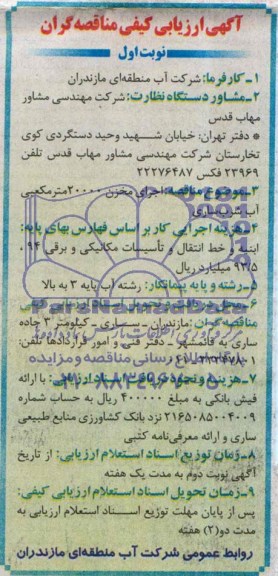 آگهی ارزیابی کیفی مناقصه گران
نوبت اول
۱- کارفرما: شرکت آب منطقه‌ای مازندران
۲- مشاور دستگاه نظارت: شرکت مهندسی مشاور
مهاب قدس
* دفتر تهران: خیابان شهید وحید دستگردی کوی
تخارستان شرکت مهندسی مشاور مهاب قدس تلفن
۲۳۹۶۹ فکس ۲۲۲۷۶۴۸۷
۳- موضوع مناقصه: اجرای مخزن ۲۰۰۰۰ مترمکعبی
آب شرب ساری
۴- هزینه اجرایی کار بر اساس فهارس بهای پایه:
ابنیه، خط انتقال و تأسیسات مکانیکی و برقی ۹۴،
۹۳/۵ میلیارد ریال
۵- رشته و پایه پیمانکار: رشته آب پایه ۳ به بالا
۶- محل دریافت و تحویل اسناد ارزیابی کیفی
مناقصه گران: مازندران - ساری - کیلومتر ۳ جاده
ساری به قائمشهر - دفتر فنی و امور قراردادها تلفن:
۷- هزینه و نحوه دریافت اسناد ارزیابی: با ارائه
فیش بانکی به مبلغ ۴۰۰۰۰۰ ریال به حساب شماره
۲۱۶۵۰۸۵۰۰۴۰۰۹ نزد بانک کشاورزی منابع طبیعی
ساری و ارائه معرفی‌نامه کتبی
۸- زمان توزیع اسناد استعلام ارزیابی: از تاریخ
آگهی نوبت دوم به مدت یک هفته
۹- زمان تحویل اسناد استعلام ارزیابی کیفی:
پس از پایان مهلت توزیع اسناد استعلام ارزیابی به
مدت دو(۲) هفته
روابط عمومی شرکت آب منطقه‌ای مازندران
ParsNamadData